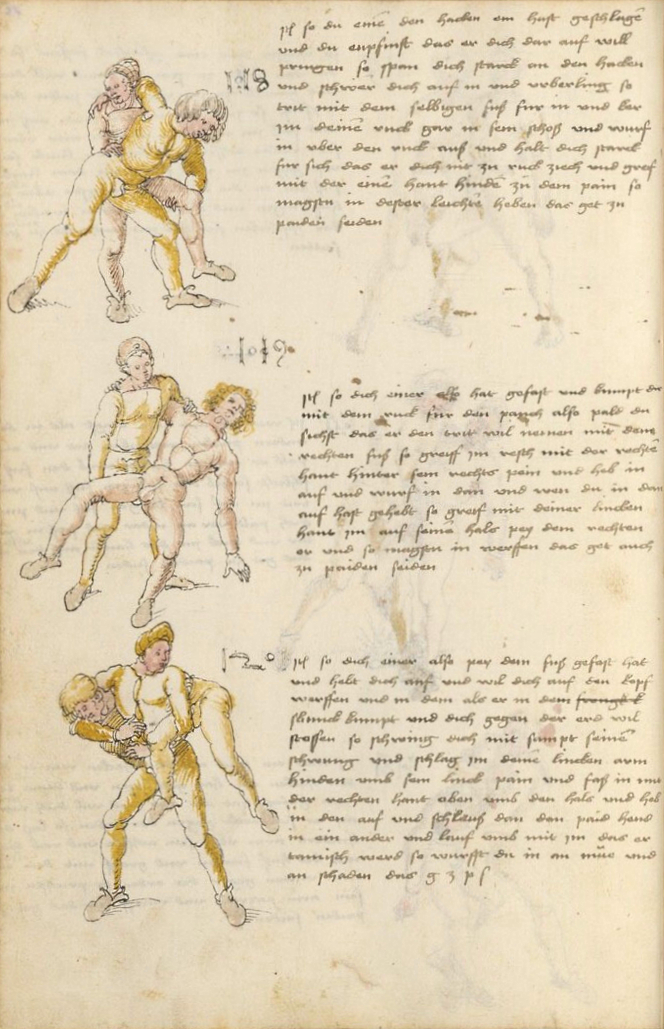 118
Itl so du eine den hacken ein hast geschlage
und du enpfinst das er dich dar auf will
pringen so span dich starck an den hacken
und schwer dich auf in und urberling so
trit mit dem selbigen fuß fur in und ker
im deinen ruck gar in sein schoß und wurf
in uber den ruck auß und halt dich starck
fur sich das er dich nit zu ruck ziech und greif
mit der eine hant hinden zu dem pain so
magstu in dester leichte heben das get zu
paiden seiden
119
Itl so dich einer also hat gefast und kumpt dir
mit dem ruck fur den pauch also pald du
sichst das er den trit wil nemen mit dem
rechten fuß so greiff im resch mit der rechte
hant hinter sein rechts pein und heb in
auf und wurf in dan und wen du in dan
auf hast gehebt so greif mit deiner lincken
hant im auf seine hals pey dem rechten
or und so magstu in werffen das get auch
zu paiden seiden
120
Itl so dich einer also pey dem fuß gefast hat
und helt dich auf und wil dich auf den kopf
werffen und in dem als er in dem
schwuck kumpt und dich gegen der erd wil
stossen so schwing dich mit sampt seine
schwung und schlag im deine lincken arm
hinden umb sein linck pain und faß in mit
der rechten hant oben umb den hals und heb
in den auf und schleuß dan den paid hend
in ein ander und lauf umb mit im das er
tamisch werd so wurfft du in an mue und
an schaden das g z p s